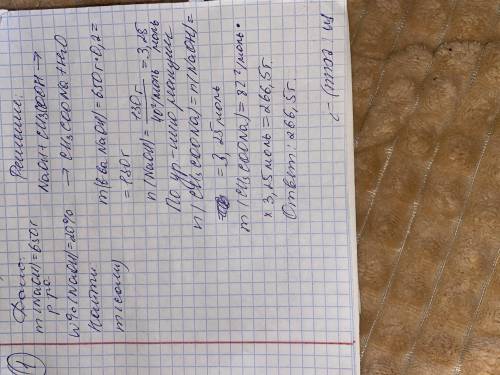 1
Дано:
m(NaOH)=650г
р-ра
W%(NaOH)=20%
Найти
m(соли)
m(соли)-?
Решение:
NaOH+CH3COOH→
→ CH3COONa+H2O
m(в-ва NaOH)=650г·0,2=
=130г
n(NaOH)=130г/40г/моль=3,25 моль
По ур-нию реакции
n(CH3COONa)=n(NaOH)=
=3,25моль
m(CH3COONa)=82г/моль·
×3,25моль=266,5г.
Ответ: 266,5г.